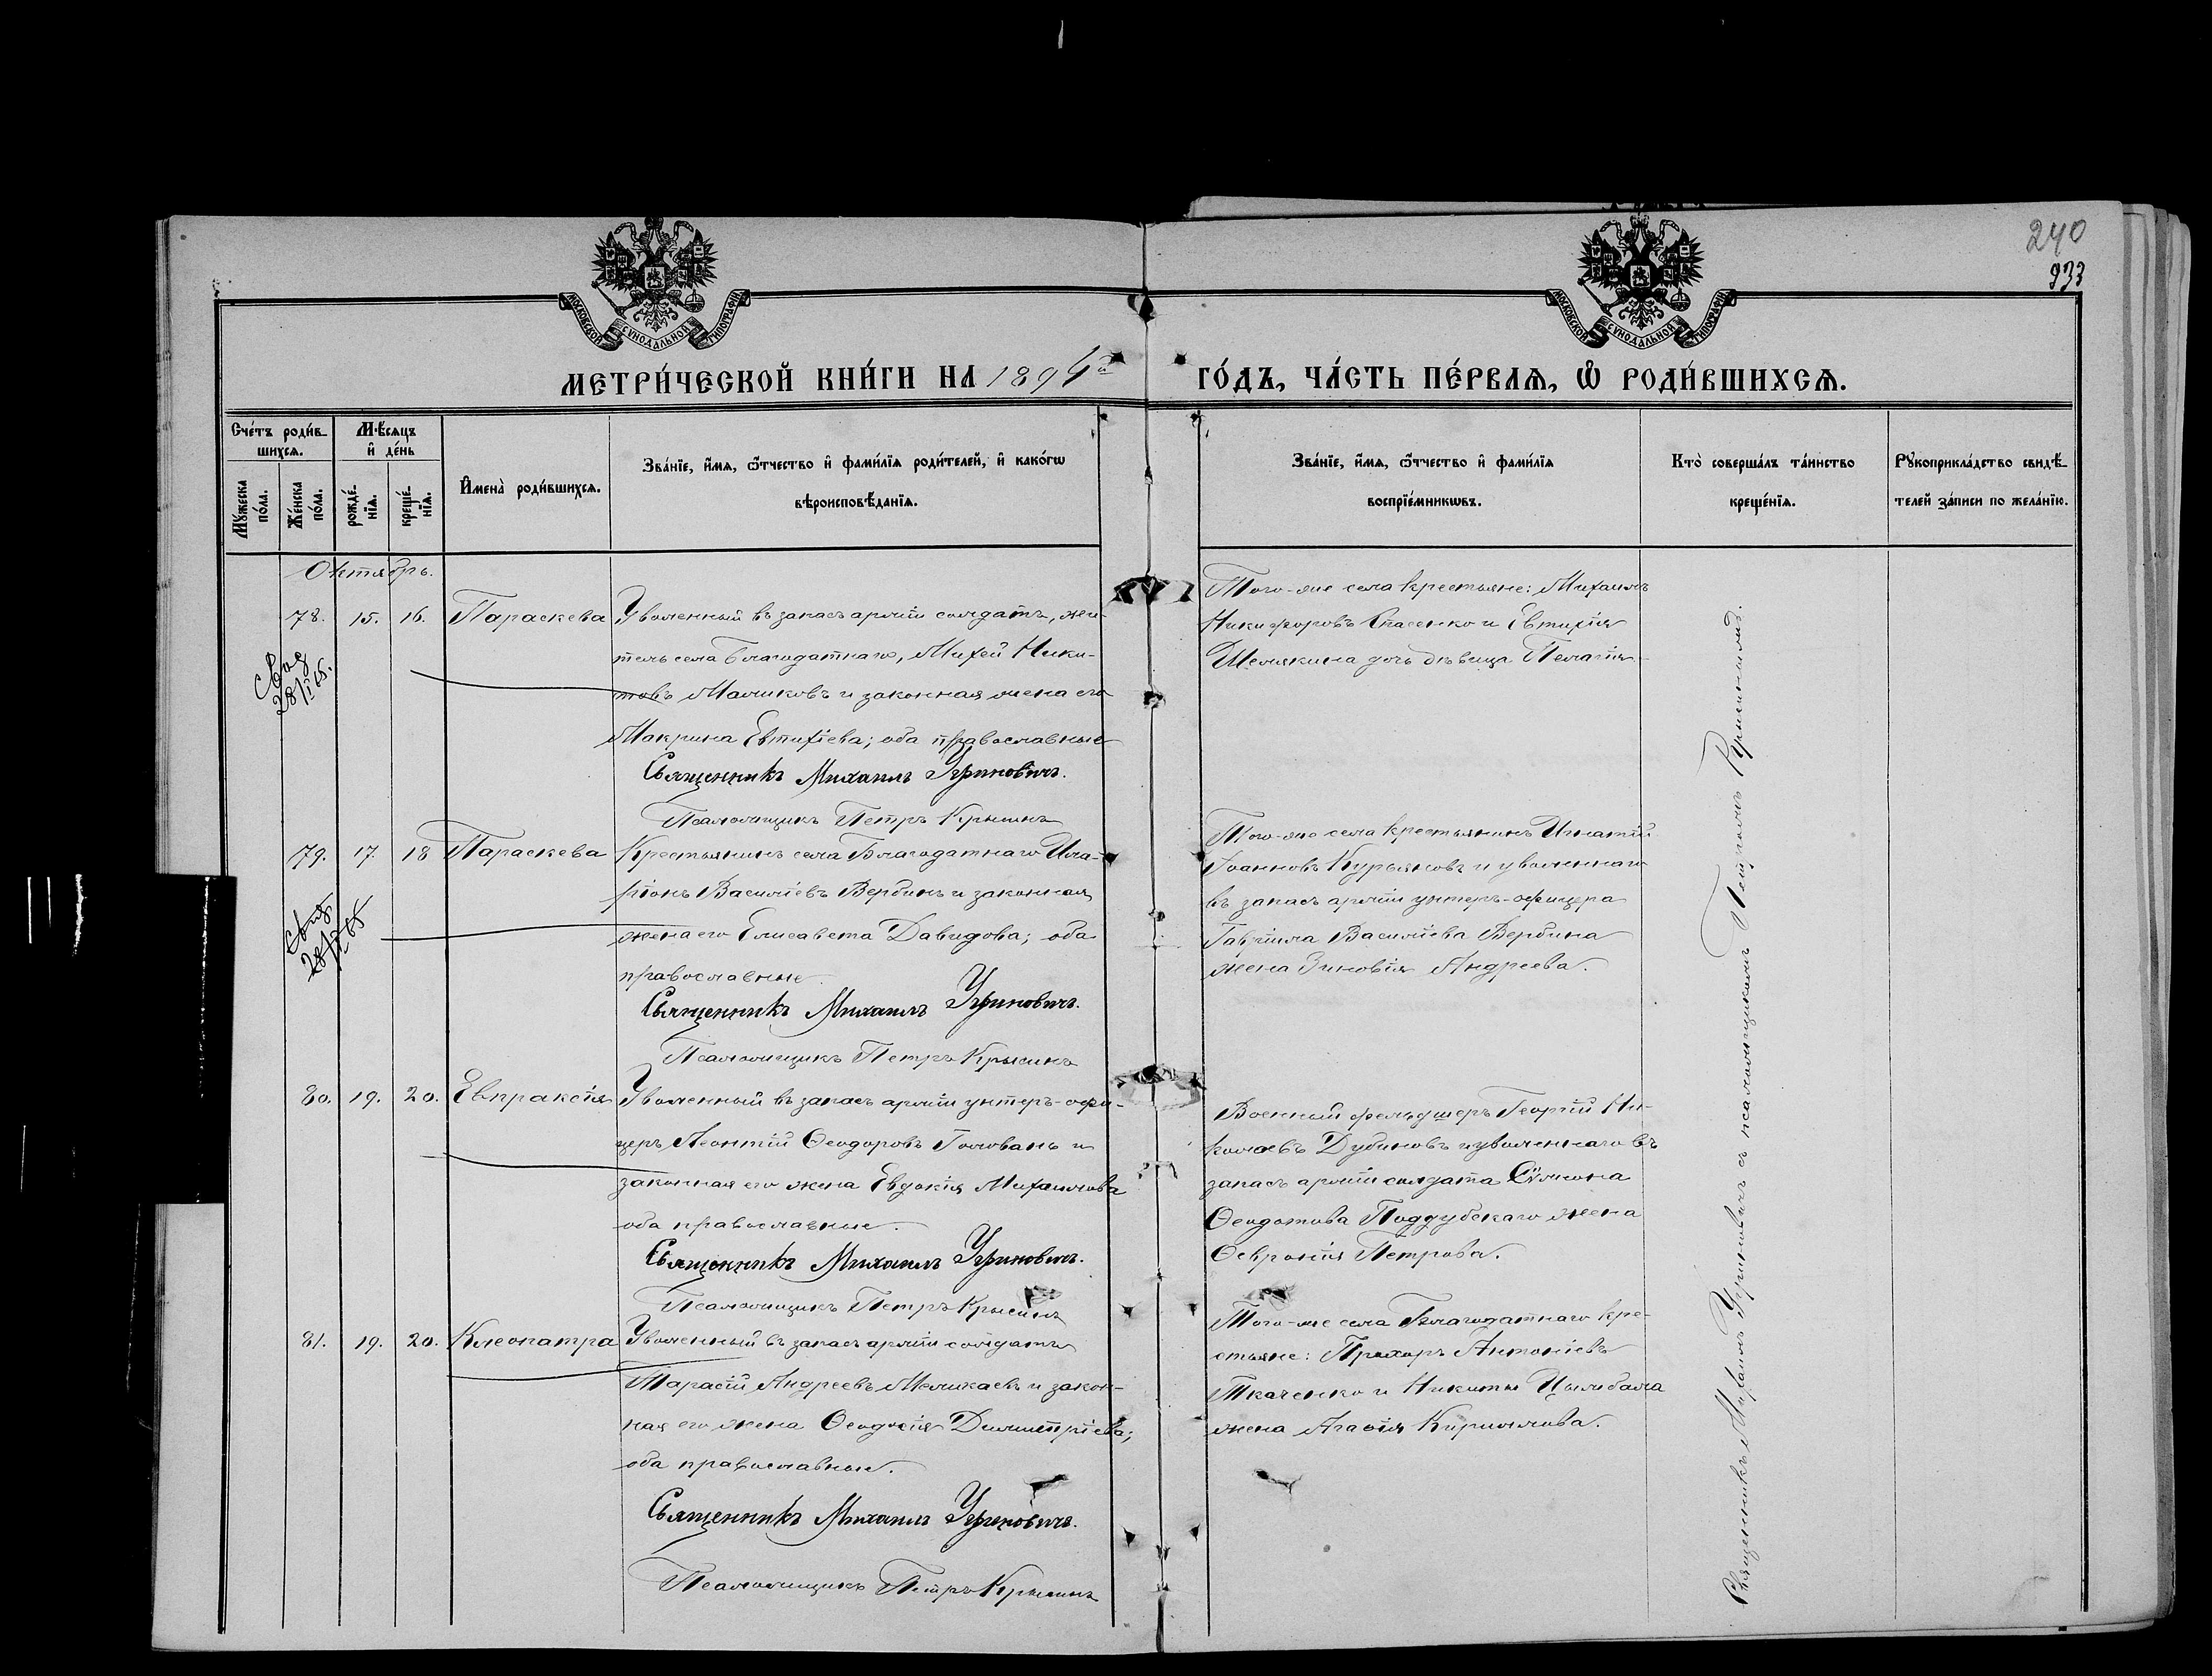 240
933
МОСКОВСКОЙ СѴНОДАЛЬНОЙ ТИПОГРАФІИ
МОСКОВСКОЙ СѴНОДАЛЬНОЙ ТИПОГРАФІИ
МЕТРИ́ЧЕСКОЙ КНИ́ГИ НА 1894й
ГО́ДЪ, ЧА́СТЬ ПЕ́РВАѦ, Ѡ҆ РОДИ́ВШИХСѦ.
Сче́тъ роди́в-
шихсѧ.
Мѣ́сѧцъ
и҆ де́нь
Мꙋ́жеска по́ла.
Же́нска по́ла.
рожде́-нїѧ.
креще́-нїѧ.
И҆мена̀ роди́вшихсѧ.
Зва́нїе, и҆́мѧ, ѻ҆́тчество и҆ фами́лїѧ роди́телей, и҆ како́гѡ
вѣроисповѣ́данїѧ.
Зва́нїе, и҆́мѧ, ѻ҆́тчество и҆ фами́лїѧ
воспрїе́мникѡвъ.
Кто̀ соверша́лъ та́инство
креще́нїѧ.
Рꙋкоприкла́дство свидѣ́-
телей за́писи по жела́нїю.
Октябрь.
78. 15. 16. Параскева Уволенный въ запасъ арміи солдатъ, жи-
тель села Благодатнаго, Михей Ники-
товъ Маликовъ и законная жена его
Макрина Евтихіева; оба православные
Священникъ Михаилъ Угриновичъ.
Псаломщикъ Петръ Крысинъ
Того-же села крестьяне: Михаилъ
Никифоровъ Спасенко и Евтихія
Шелякина дочь дѣвица Пелагія
79. 17. 18 Параскева Крестьянинъ села Благодатнаго Ила-
ріонъ Василіевъ Вербинъ и законная
жена его Елисавета Давидова; оба
православные.
Священникъ Михаилъ Угриновичъ.
Псаломщикъ Петръ Крысинъ
Того-же села крестьянинъ Игнатій
Іоанновъ Курьяновъ и уволеннаго
въ запасъ арміи унтеръ-офицера
Гавріила Василіева Вербина
жена Зиновія Андреева.
80. 19. 20. Евпраксія Уволенный въ запасъ арміи унтеръ-офи-
церъ Леонтій Ѳеодоровъ Голованъ и
законная его жена Евдокія Михаилова
оба православные.
Священникъ Михаилъ Угриновичъ.
Псаломщикъ Петръ Крысинъ
Военный фельдшеръ Георгій Ни-
колаевъ Дубиновъ и уволеннаго въ
запасъ арміи солдата Сѵмеона
Ѳеодотова Поддубскаго жена
Ѳевронія Петрова.
81. 19. 20. Клеопатра Уволенный въ запасъ арміи солдатъ
Тарасій Андреевъ Меликаевъ и закон-
ная его жена Ѳеодосія Димитріева;
оба православные.
Священникъ Михаилъ Угриновичъ.
Псаломщикъ Петръ Крысинъ
Того-же села Благодатнаго кре-
стьяне: Прохоръ Антоніевъ
Ткаченко и Никиты Цымбала
жена Агафія Кириллова.
Священникъ Михаилъ Угриновичъ съ псаломщикомъ Петромъ Крысинымъ.